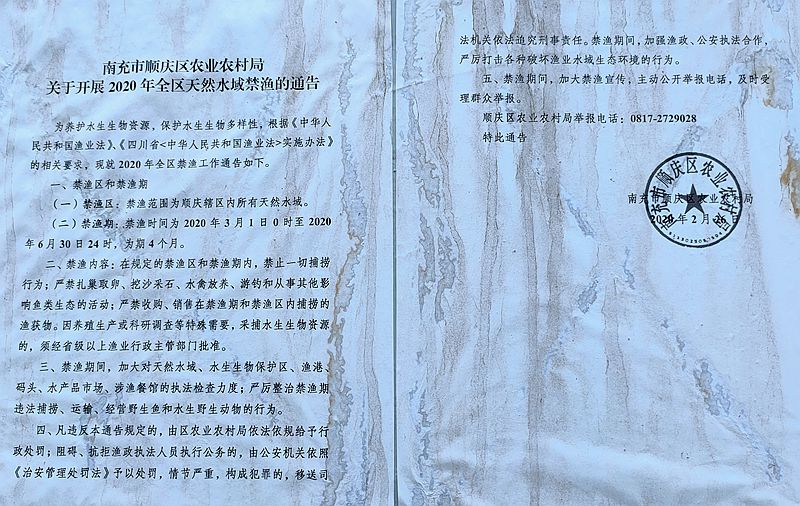 南充市顺庆区农业农村局
关于开展 2020 年全区天然水域禁渔的通告
为养护水生生物资源，保护水生生物多样性，根据《中华人
民共和国渔业法》、《四川省<中华人民共和国渔业法>实施办法》
的相关要求，现就 2020 年全区禁渔工作通告如下。
一、禁渔区和禁渔期
（一）禁渔区：禁渔范围为顺庆辖区内所有天然水域。
（二）禁渔期：禁渔时间为 2020 年 3 月 1 日 0 时至 2020
年 6 月 30 日 24 时，为期 4 个月。
二、禁渔内容：在规定的禁渔区和禁渔期内，禁止一切捕捞
行为；严禁扎巢取卵、挖沙采石、水禽放养、游钓和从事其他影
响鱼类生态的活动；严禁收购、销售在禁渔期和禁渔区内捕捞的
渔获物。因养殖生产或科研调查等特殊需要，采捕水生生物资源
的，须经省级以上渔业行政主管部门批准。
三、禁渔期间，加大对天然水域、水生生物保护区、渔港、
码头、水产品市场、涉渔餐馆的执法检查力度；严厉整治禁渔期
违法捕捞、运输、经营野生鱼和水生野生动物的行为。
四、凡违反本通告规定的，由区农业农村局依法依规给予行
政处罚；阻碍、抗拒渔政执法人员执行公务的，由公安机关依照
《治安管理处罚法》予以处罚，情节严重，构成犯罪的，移送司
法机关依法追究刑事责任。禁渔期间，加强渔政、公安执法合作，
严厉打击各种破坏渔业水域生态环境的行为。
五、禁渔期间，加大禁渔宣传，主动公开举报电话，及时受
理群众举报。
顺庆区农业农村局举报电话：0817-2729028
特此通告
南充市顺庆区农业农村局
2020 年 2 月 26 日
南充市顺庆区农业农村局